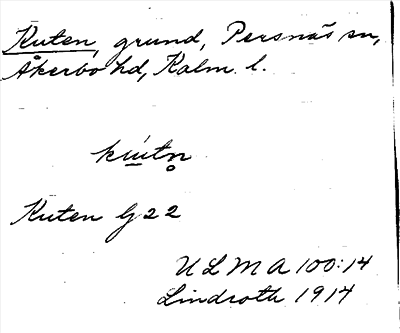 Kuten, grund, Persnäs sn,
Åkerbo hd, Kalm. l.
kútn̥
Kuten G 22
ULMA 100:14
Lindroth 1914